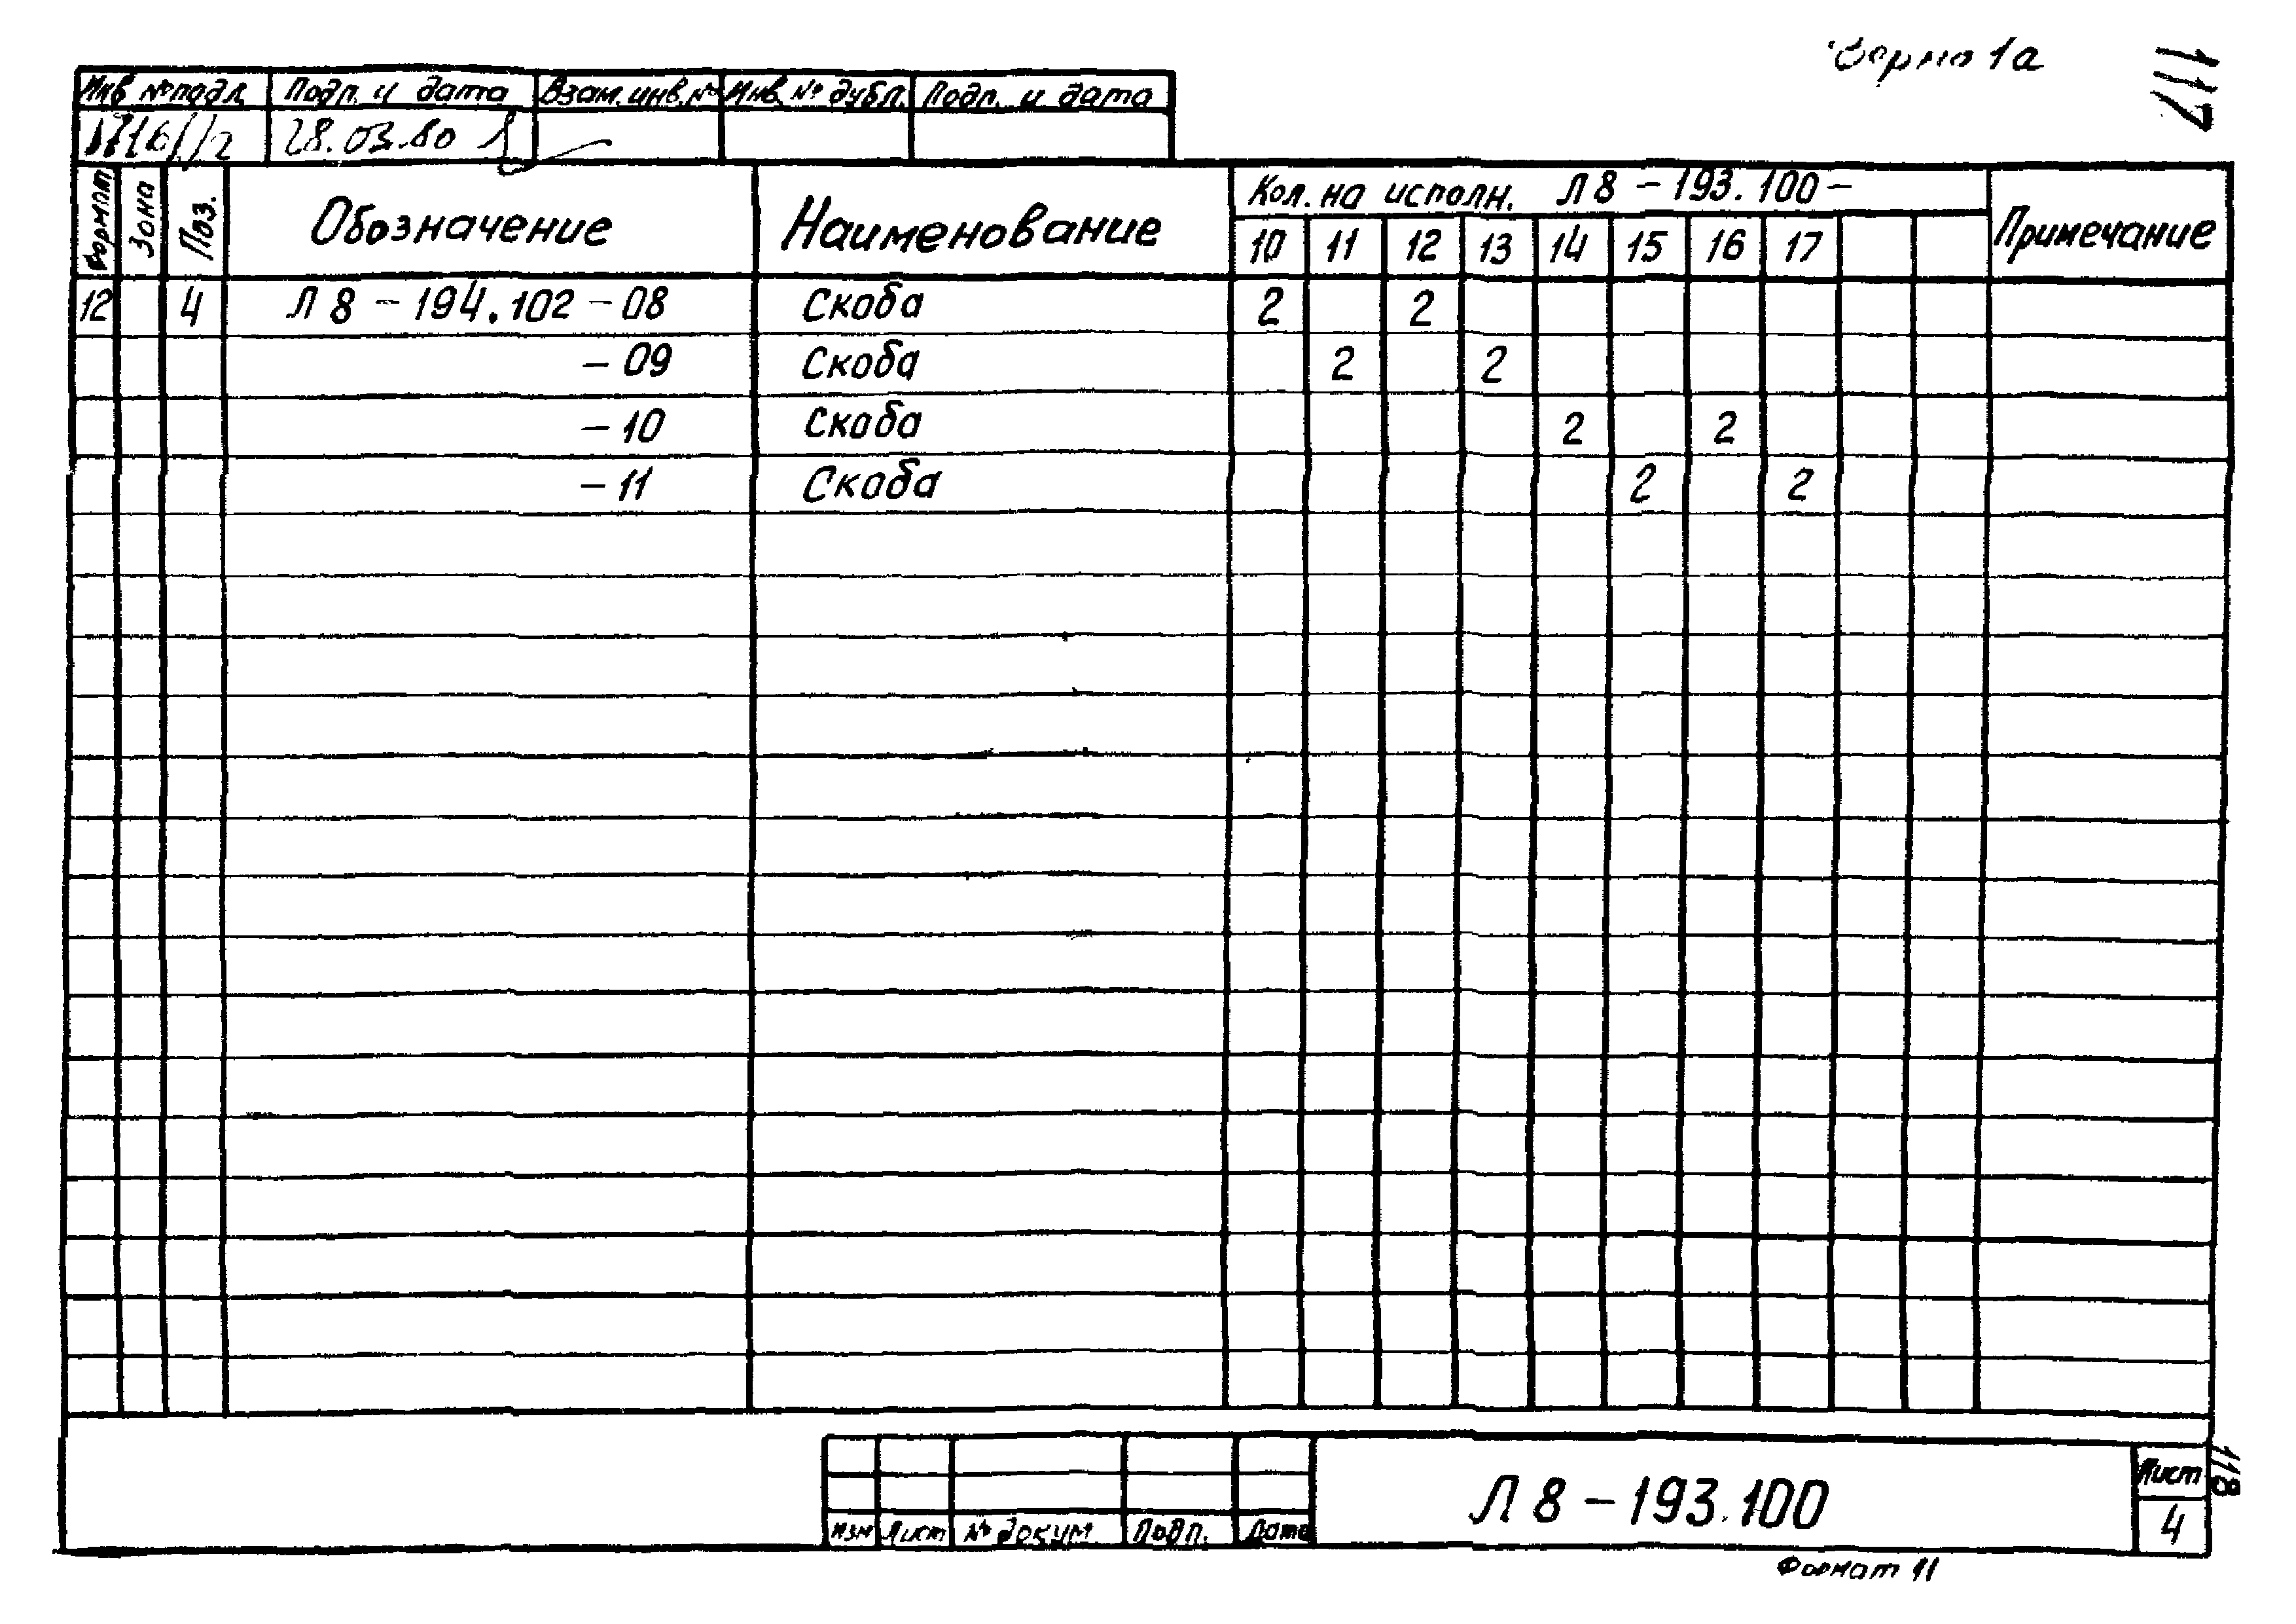 Форма 1а
117
Инв № подл. Подп. и дата Взам. инв. № Инв. № дубл. Подп. и дата
28.03.80
Формат Зона Поз. Обозначение Наименование Кол. на исполн. Л 8 - 193.100 - Примечание
10 11 12 13 14 15 16 17
12 4 Л 8 - 194.102 - 08 Скоба 2 2
- 09 Скоба 2 2
- 10 Скоба 2 2
- 11 Скоба 2 2
Изм Лист № докум. Подп. Дата
Л 8 - 193.100
Лист
4
118
Формат 11